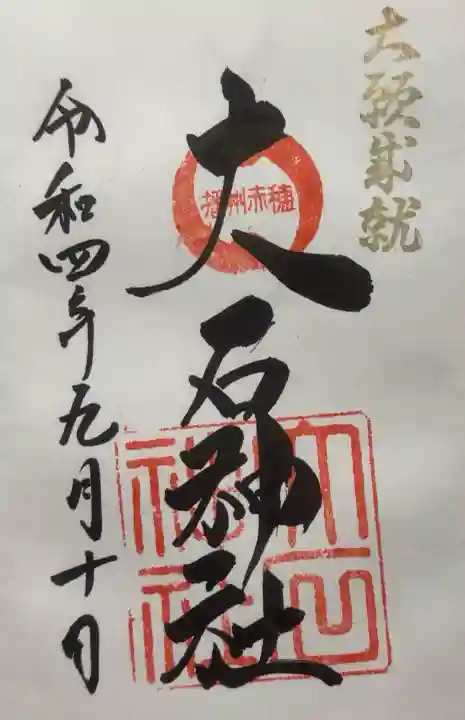 大願成就
播州赤穂
大石神社
大石神社
令和四年九月十日